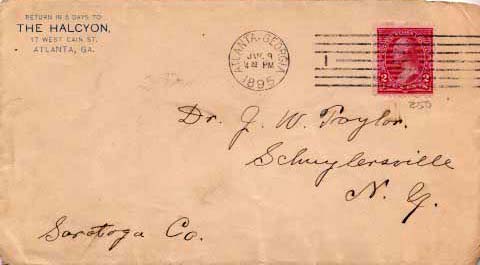 RETURN IN 5 DAYS TO
THE HALCYON,
17 WEST CAIN ST.
ATLANTA, GA.
ATLANTA-GEORGIA
1895
2 2
250
Dr. J. W. Taylor.
Schuylersville
N. Y.
Saratoga Co.